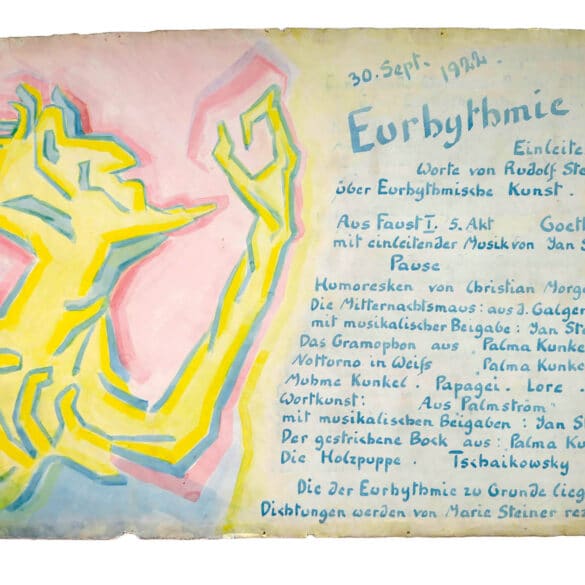 30. Sept. 1922.
Eurhythmie
Einleite
Worte von Rudolf Ste
über Eurhythmische Kunst.
Aus Faust I. 5. Akt Goeth
mit einleitender Musik von Jan S
Pause
Humoresken von Christian Morge
Die Mitternachtsmaus: aus d. Galgen
mit musikalischer Beigabe: Jan Ste
Das Gramophon aus Palma Kunke
Notturno in Weiss Palma Kunke
Muhme Kunkel. Papagei. Lore
Wortkunst: Aus Palmström
mit musikalischen Beigaben: Jan S
Der gestrichene Bock aus: Palma Ku
Die Holzpuppe. Tschaikowsky
Die der Eurhythmie zu Grunde lieg
Dichtungen werden von Marie Steiner rez